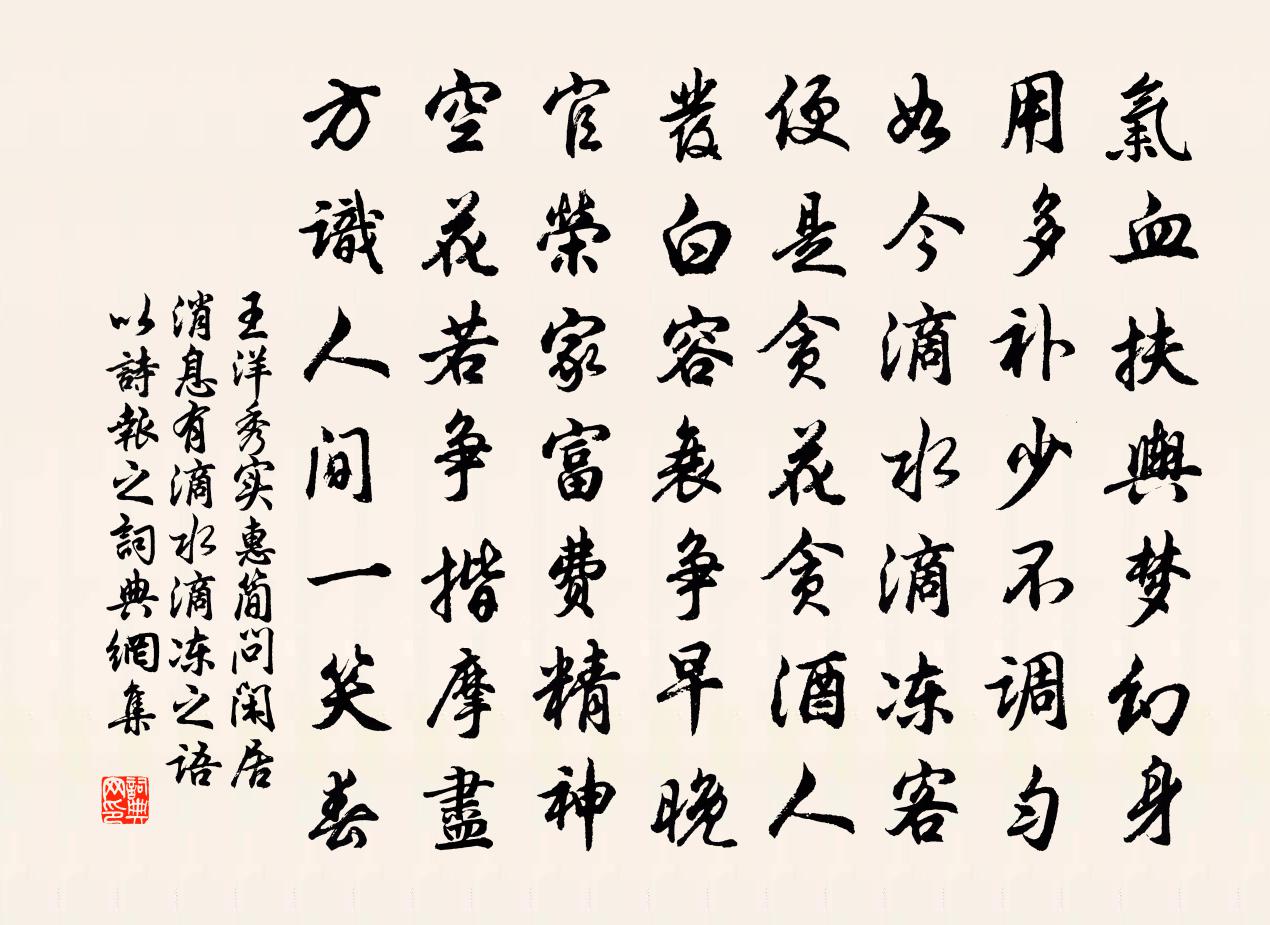 氣血扶輿梦幻身
用多补少不调匀
如今滴水滴冻客
便是贪花贪酒人
髮白容衰争早晚
官榮家富費精神
空花若争揩摩盡
方識人间一笑春
王洋秀实惠简问闲居
消息有滴水滴冻之语
以詩報之詞典網集
詞典
网印